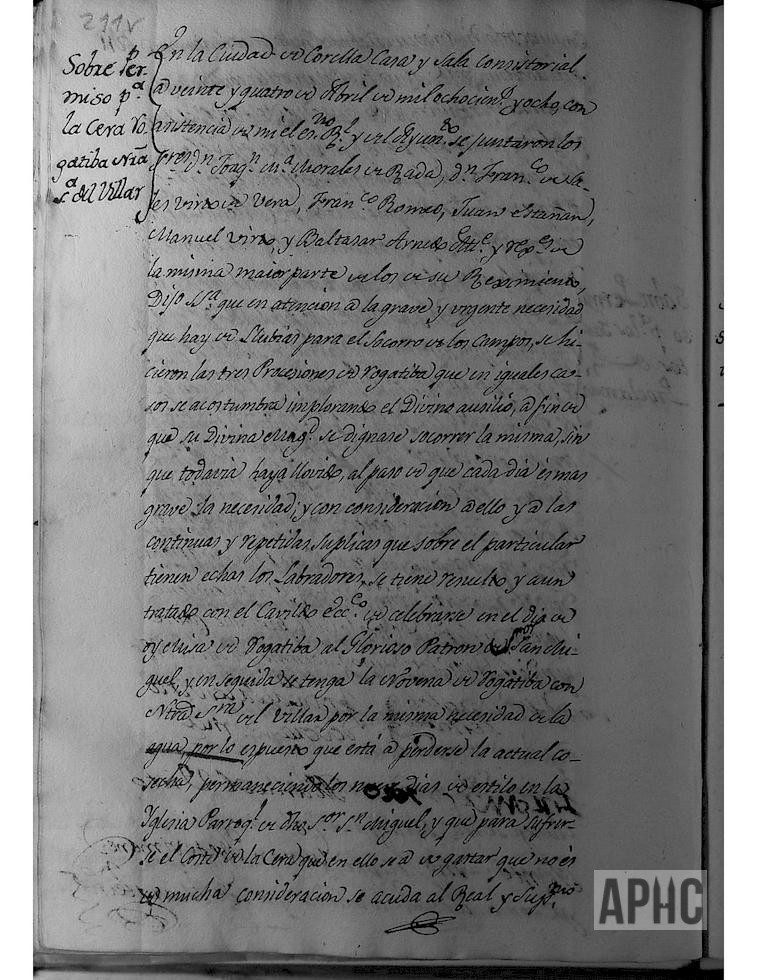 211v
Sobre Per-
miso p.a
la Cera Ro-
gatiba Ntra
S.a del Villar
En la Ciudad de Corella Casa y Sala consistorial
a veinte y quatro de Abril de mil ochocien.s y ocho, con
asistencia de mi el es.no R.l y del Ayun.to se juntaron los
Sres d.n Joaq.n M.a Morales de Rada, d.n Fran.co de Sa-
les Virto de Vera, Fran.co Romeo, Juan Estañan,
Manuel Virto, y Baltasar Arnedo Alc.e y rex.es de
la misma maior parte de los de su Reximiento,
Dijo S.a que en atencion a la grave y urgente necesidad
que hay de Llubias para el Socorro de los Campos, se hi-
cieron las tres Procesiones de rogatiba que en iguales ca-
sos se acostumbra implorando el Divino auxilio, a fin de
que su Divina Mag.d se dignase socorrer la misma, sin
que todavia haya llovido, al paso de que cada dia es mas
grave la necesidad; y con consideracion a ello y a las
continuas y repetidas suplicas que sobre el particular
tienen echas los Labradores, se tiene resuelto y aun
tratado con el Cavildo ecc.co de celebrarse en el dia de
oy Misa de Rogatiba al Glorioso Patron San Mi-
guel, y en seguida se tenga la Novena de Rogatiba con
Ntra S.ra del Villar por la misma necesidad de la
agua, por lo expuesto que está a perderse la actual co-
secha, permaneciendo los nueve dias de estilo en la
Yglesia Parroq.l de dho S.or S.n Miguel, y que para sufrir-
se el Coste de la Cera que en ello se a de gastar que no es
de mucha consideracion se acuda al Real y Sup.mo
APHC